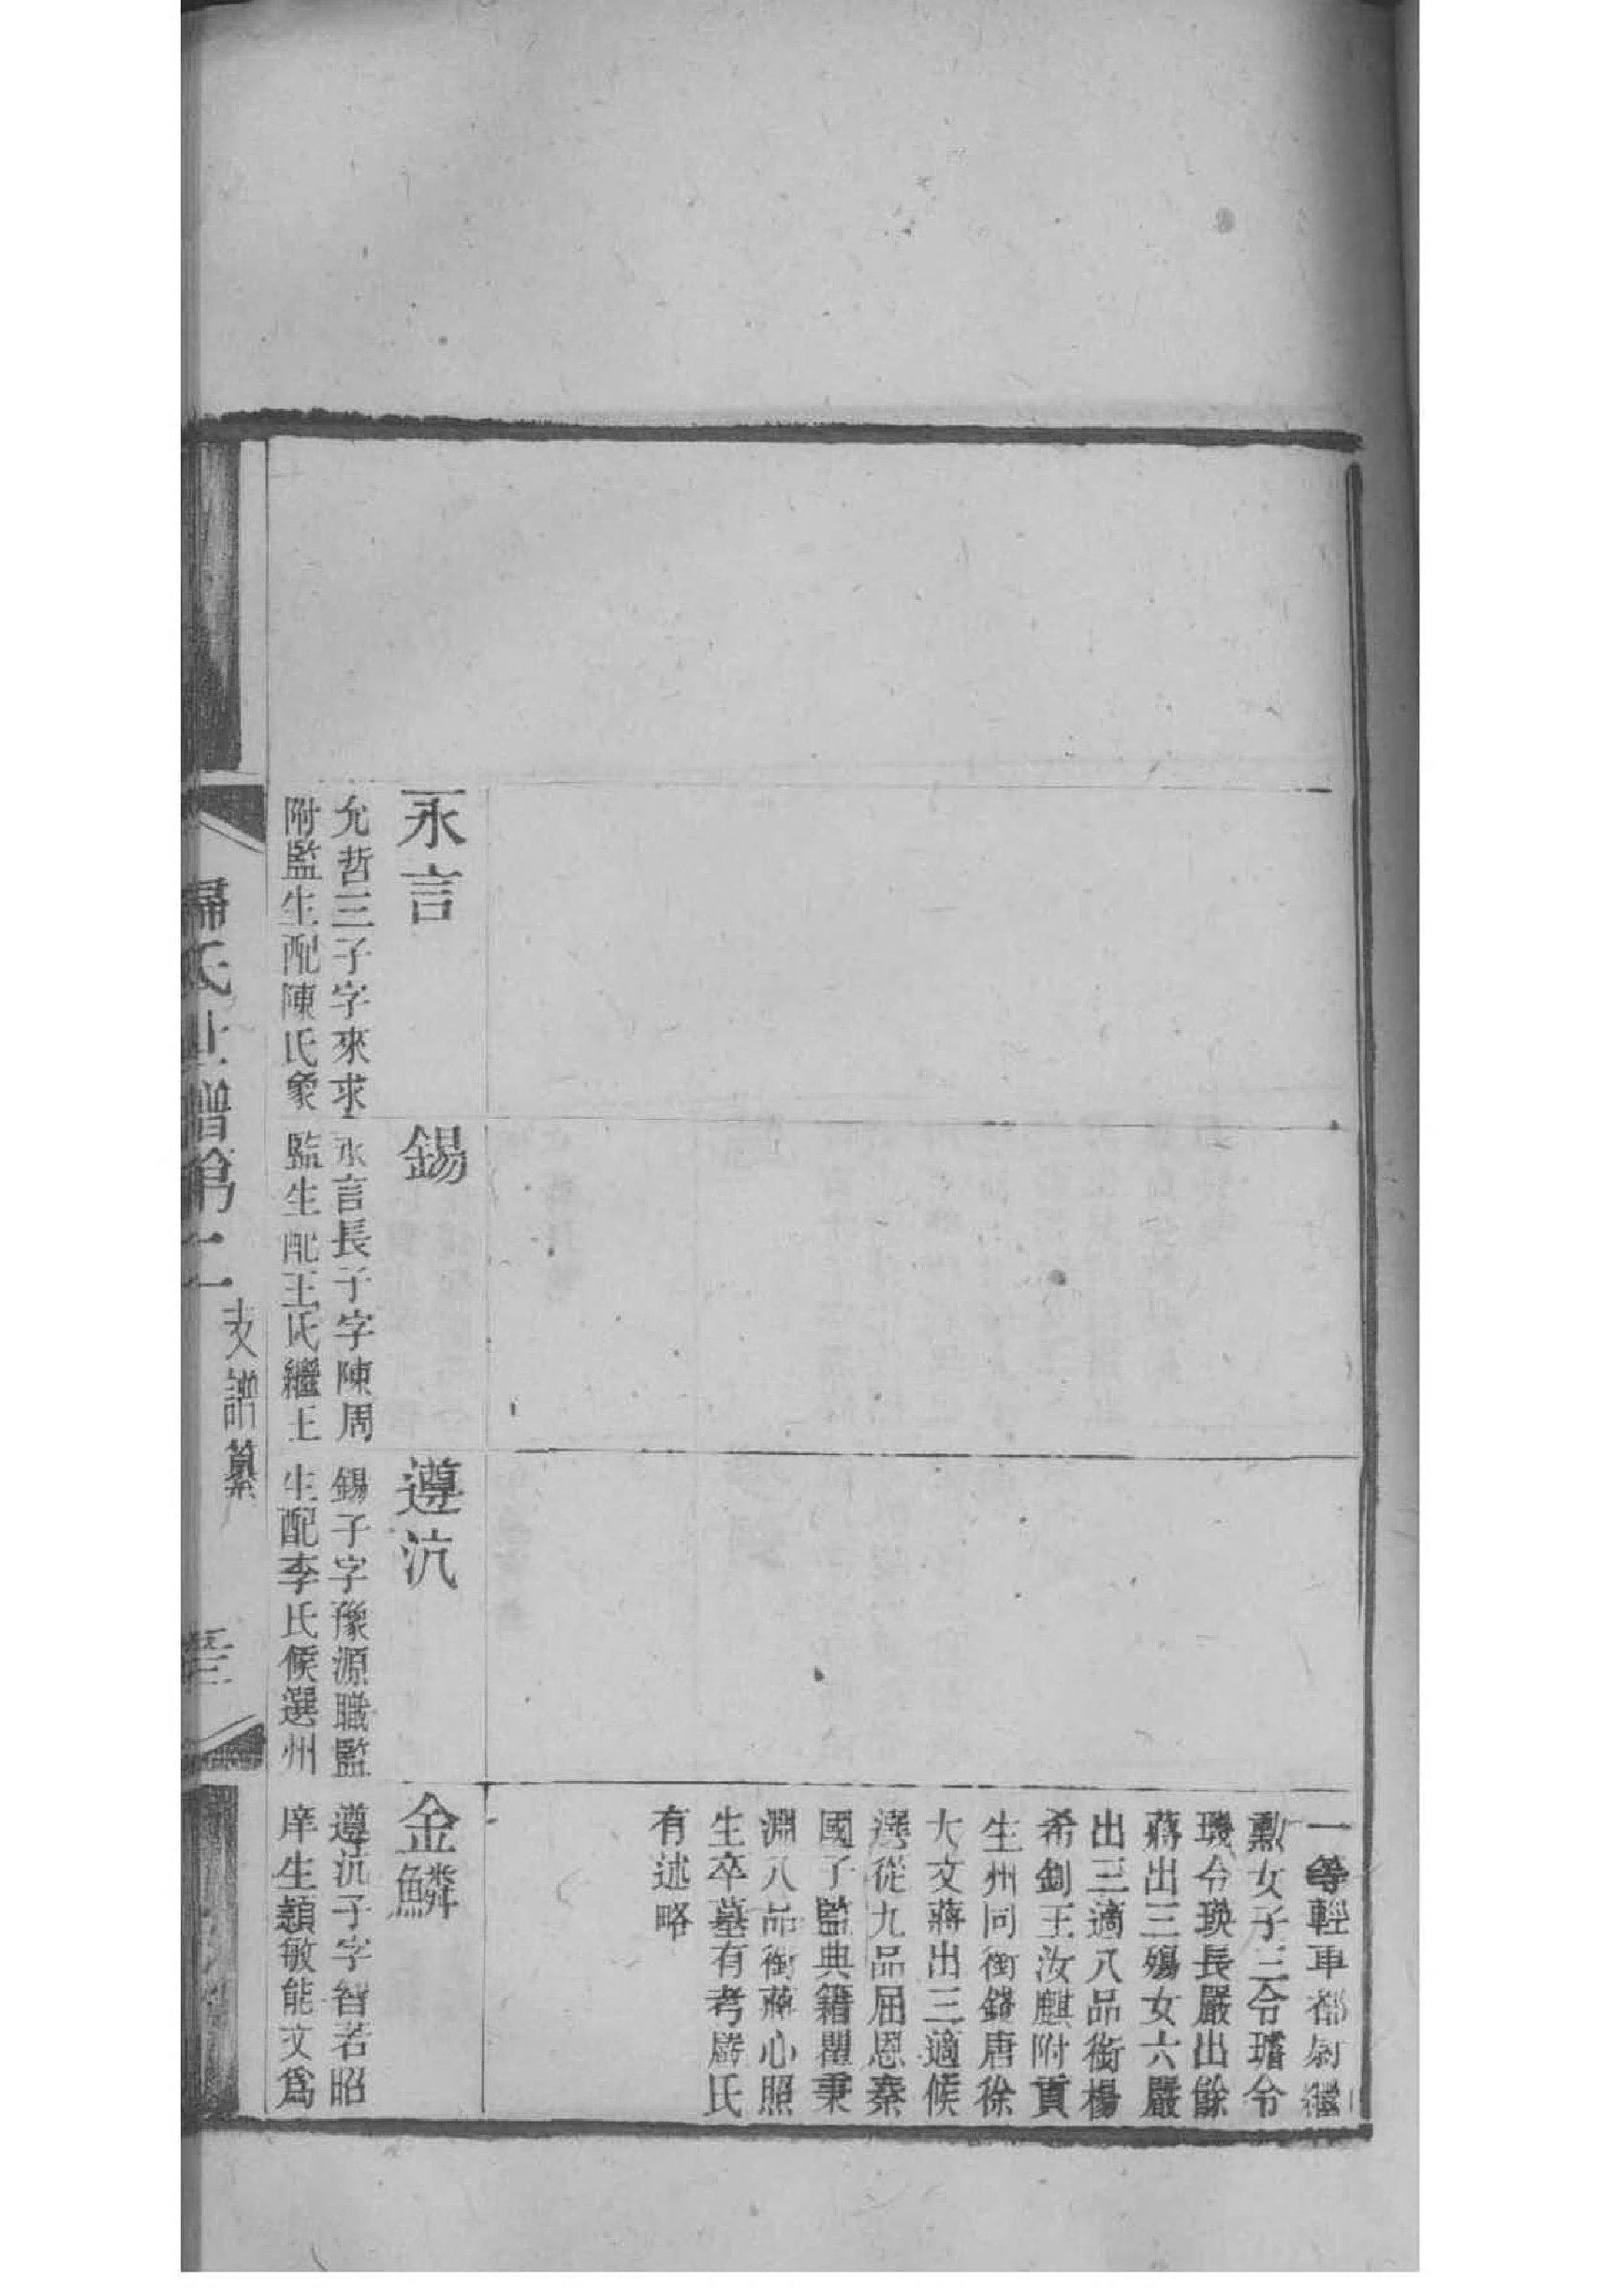 一等輕車都尉繼
勳女子三令璿令
璣令瑛長嚴出餘
蔣出三殤女六嚴
出三適八品銜楊
希釗王汝麒附貢
生州同銜錢唐徐
大文蔣出三適候
選從九品屈恩秦
國子監典籍瞿秉
淵八品銜蔣心照
生卒墓有考嚴氏
有述略
永言
允哲三子字來求
附監生配陳氏象
錫
永言長子字陳周
監生配王氏繼王
遵沆
錫子字豫源職監
生配李氏候選州
金鱗
遵沆子字智若昭
庠生穎敏能文爲
歸氏世譜第二
支譜纂